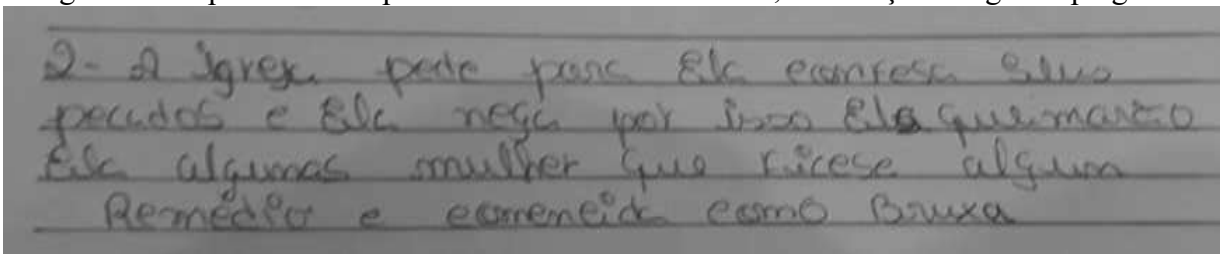 2- A Igreja pede para Ela comfesa seus
pecados e Ela nega por isso Eles queimarão
Ela algumas mulher que ficese algum
Remédio e comeneida como Bruxa